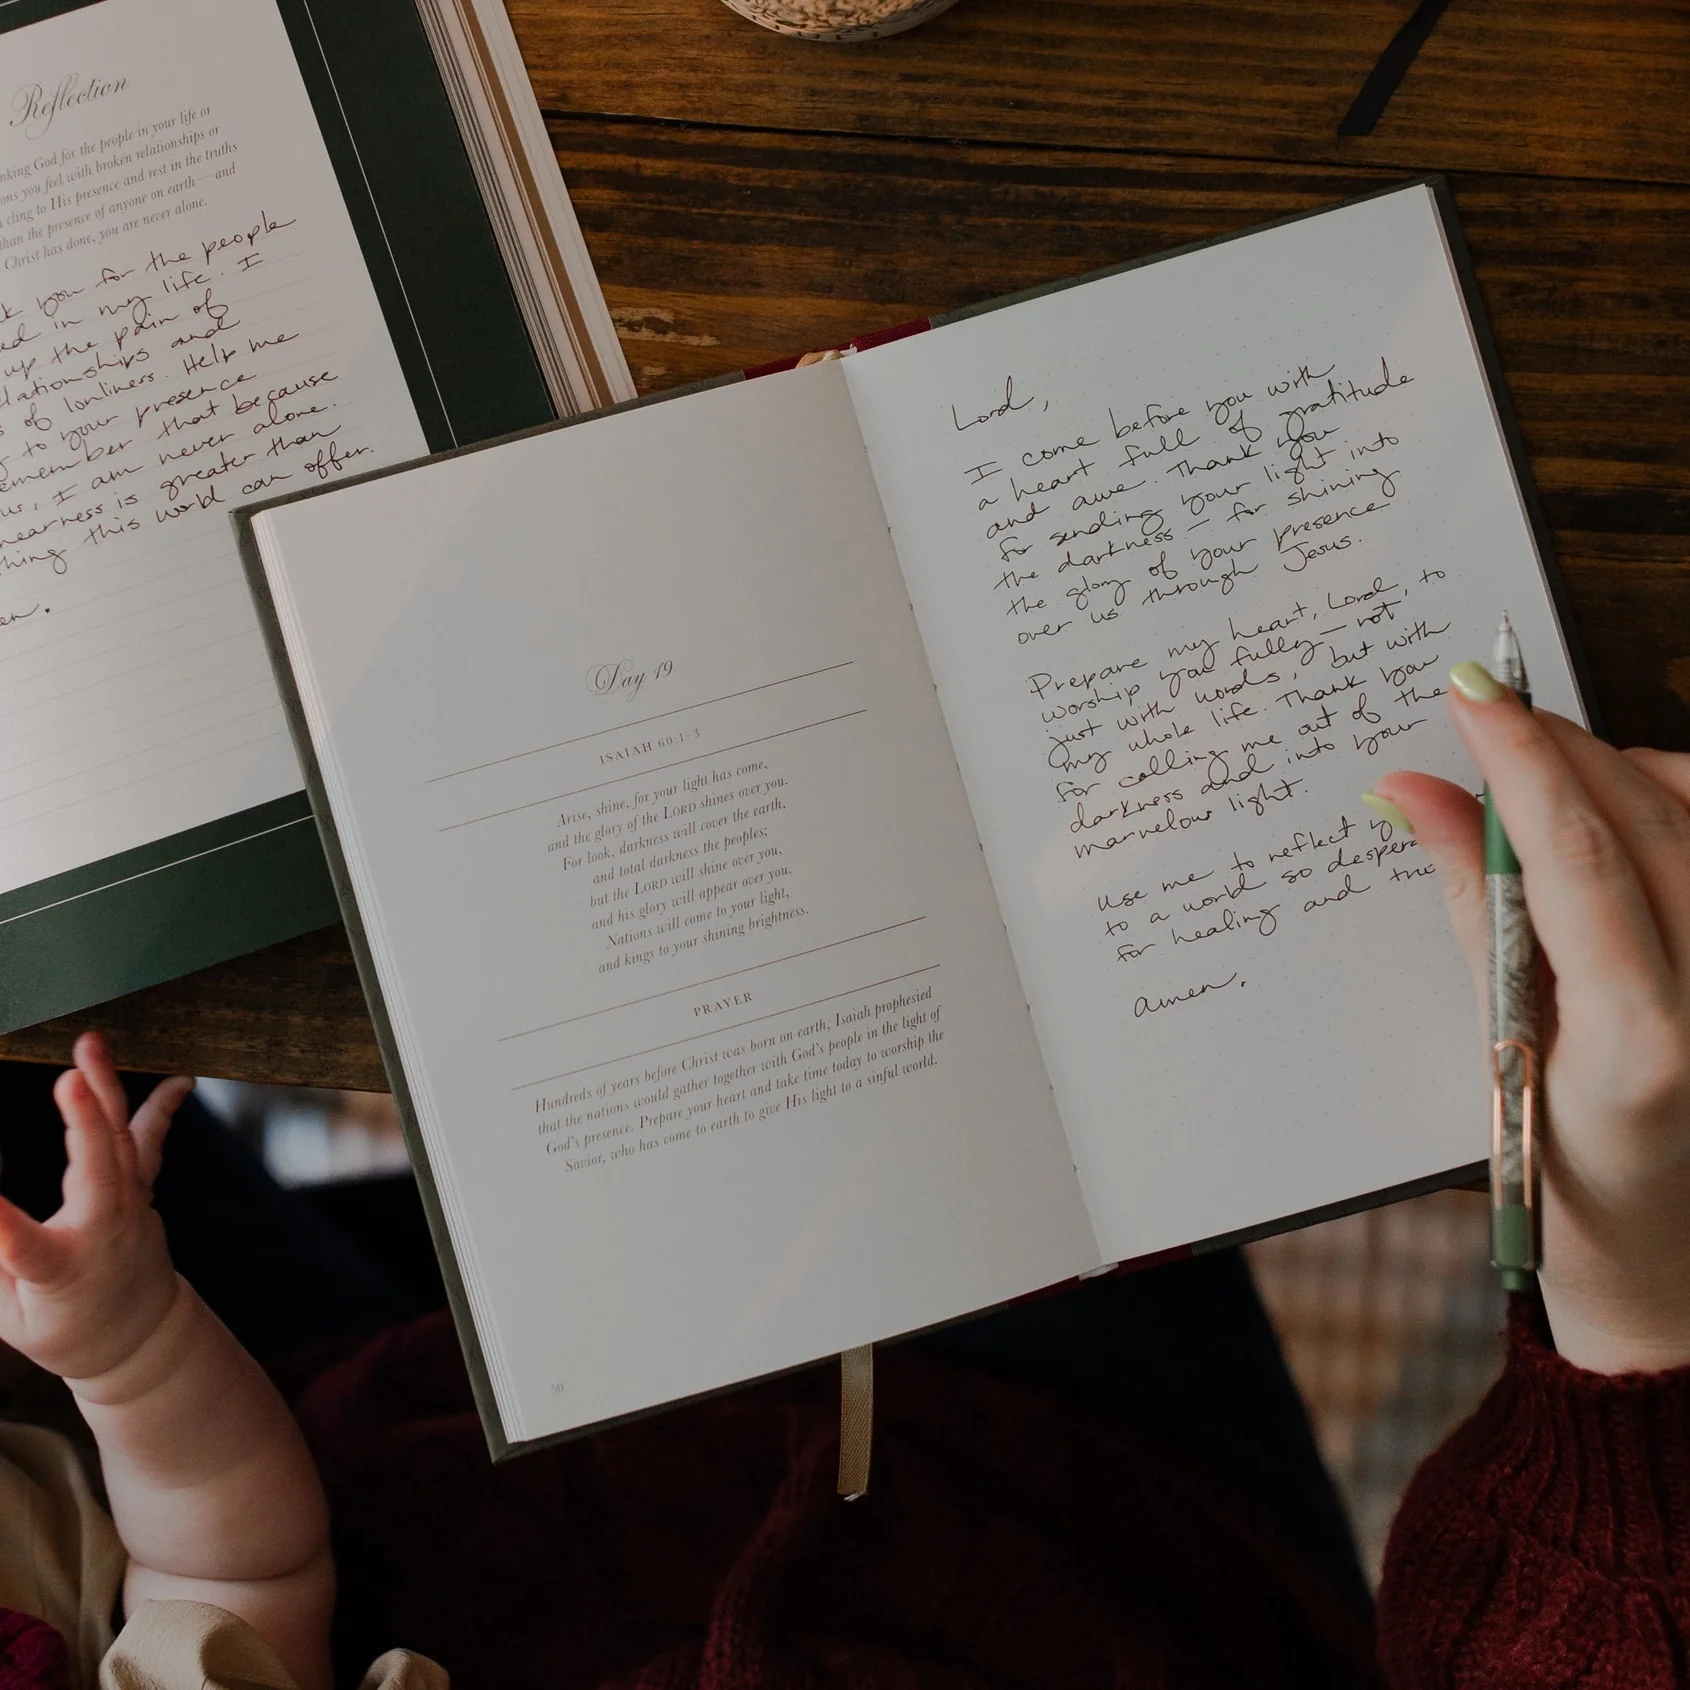 Reflection
nking God for the people in your life or
ons you feel with broken relationships or
cling to His presence and rest in the truths
than the presence of anyone on earth—and
Christ has done, you are never alone.
k you for the people
ed in my life. I
up the pain of
lationships and
s of lonliness. Help me
to your presence
emember that because
us, I am never alone.
nearness is greater than
thing this world can offer.
en.
Day 19
ISAIAH 60:1–3
Arise, shine, for your light has come,
and the glory of the LORD shines over you.
For look, darkness will cover the earth,
and total darkness the peoples;
but the LORD will shine over you,
and his glory will appear over you.
Nations will come to your light,
and kings to your shining brightness.
PRAYER
Hundreds of years before Christ was born on earth, Isaiah prophesied
that the nations would gather together with God's people in the light of
God's presence. Prepare your heart and take time today to worship the
Savior, who has come to earth to give His light to a sinful world.
50
Lord,
I come before you with
a heart full of gratitude
and awe. Thank you
for sending your light into
the darkness – for shining
the glory of your presence
over us through Jesus.
Prepare my heart, Lord, to
worship you fully – not
just with words, but with
my whole life. Thank you
for calling me out of the
darkness and into your
marvelous light.
Use me to reflect y
to a world so despera
for healing and
amen.